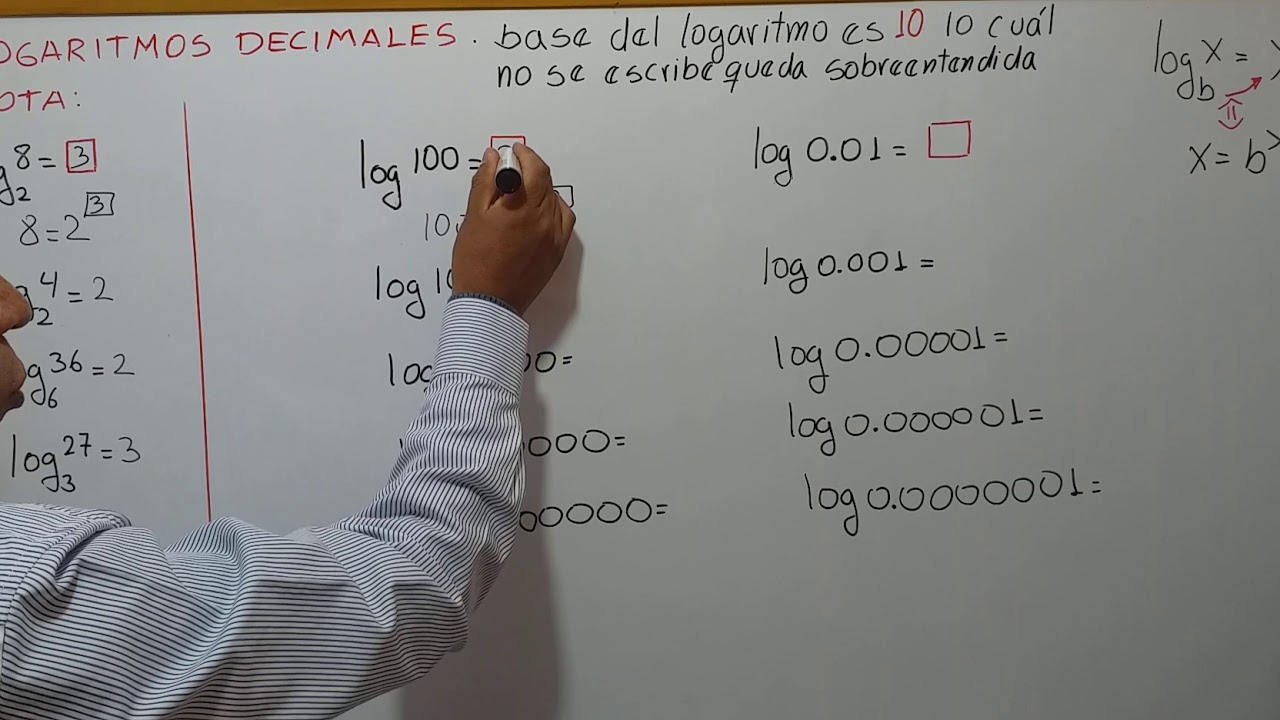 OGARITMOS DECIMALES. base del logaritmo es 10 lo cuál
no se escribe queda sobreentendida
OTA:
g₂ 8 = 3
8 = 2³
g₂ 4 = 2
g₆ 36 = 2
log₃ 27 = 3
log 100 =
10
log 10
lo 00=
000=
00000=
log 0.01 =
log 0.001 =
log 0.00001 =
log 0.000001 =
log 0.0000001 =
log_b x =
x = b